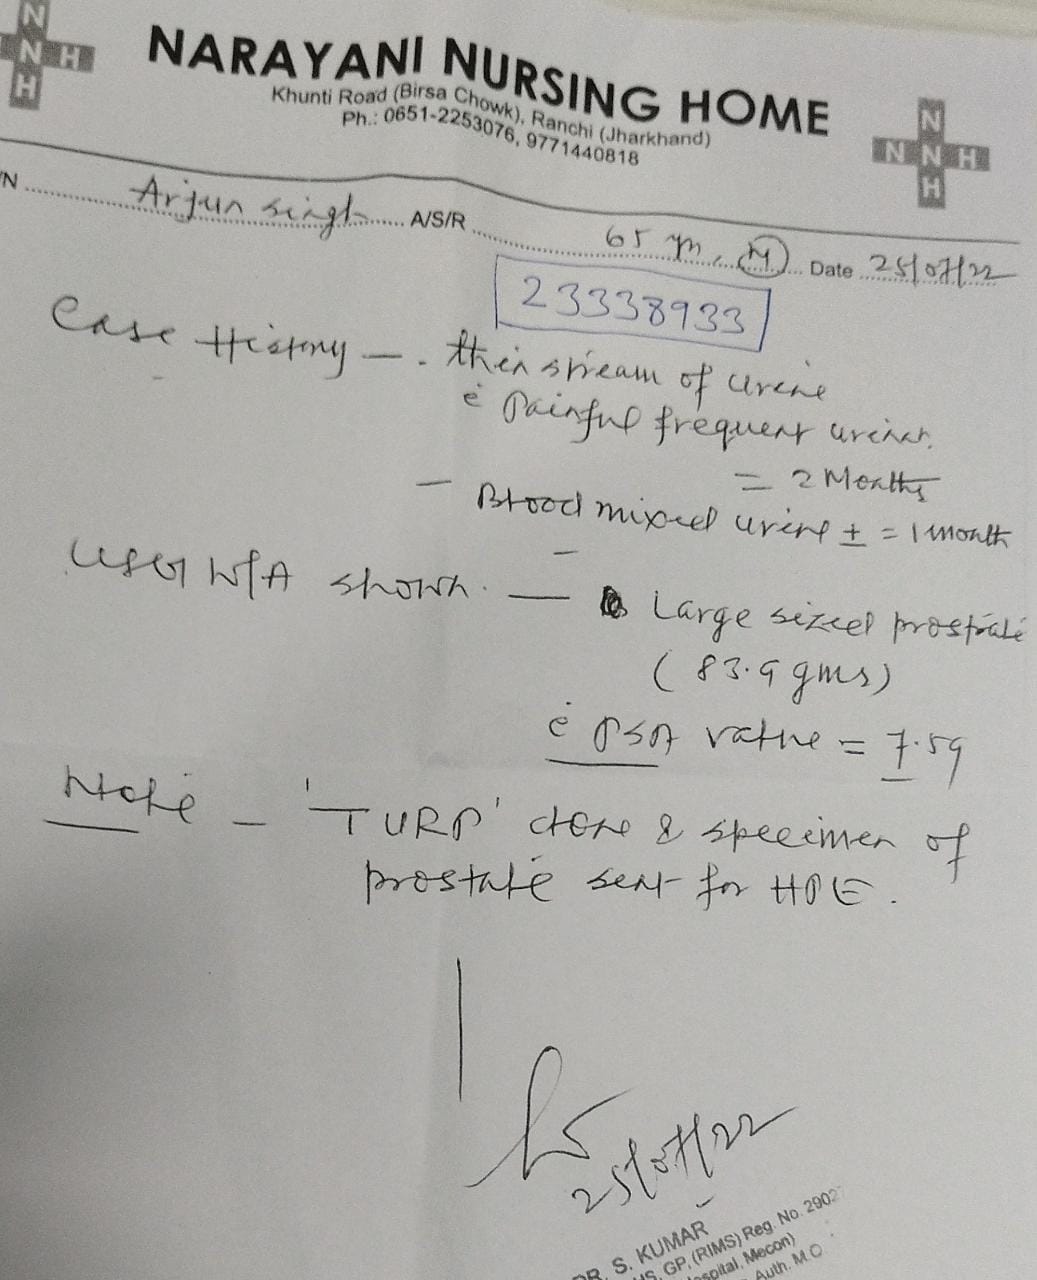 N
N N H
H
NARAYANI NURSING HOME
Khunti Road (Birsa Chowk), Ranchi (Jharkhand)
Ph.: 0651-2253076, 9771440818
N
N N H
H
/N Arjun singh A/S/R 65 m, M Date 25/07/22
23338933
Case History - . thin stream of urine
c̄ Painful frequent urinan.
= 2 Months
- Blood mixed urine ± = 1 month
USG W/A shown. - Large sized prostrate
(83.9 gms)
c̄ PSA value = 7.59
Note - 'TURP' done & specimen of
prostate sent for HPE.
25/07/22
DR. S. KUMAR
GP, (RIMS) Reg. No. 2902
Hospital, Mecon)
Auth. M.O.